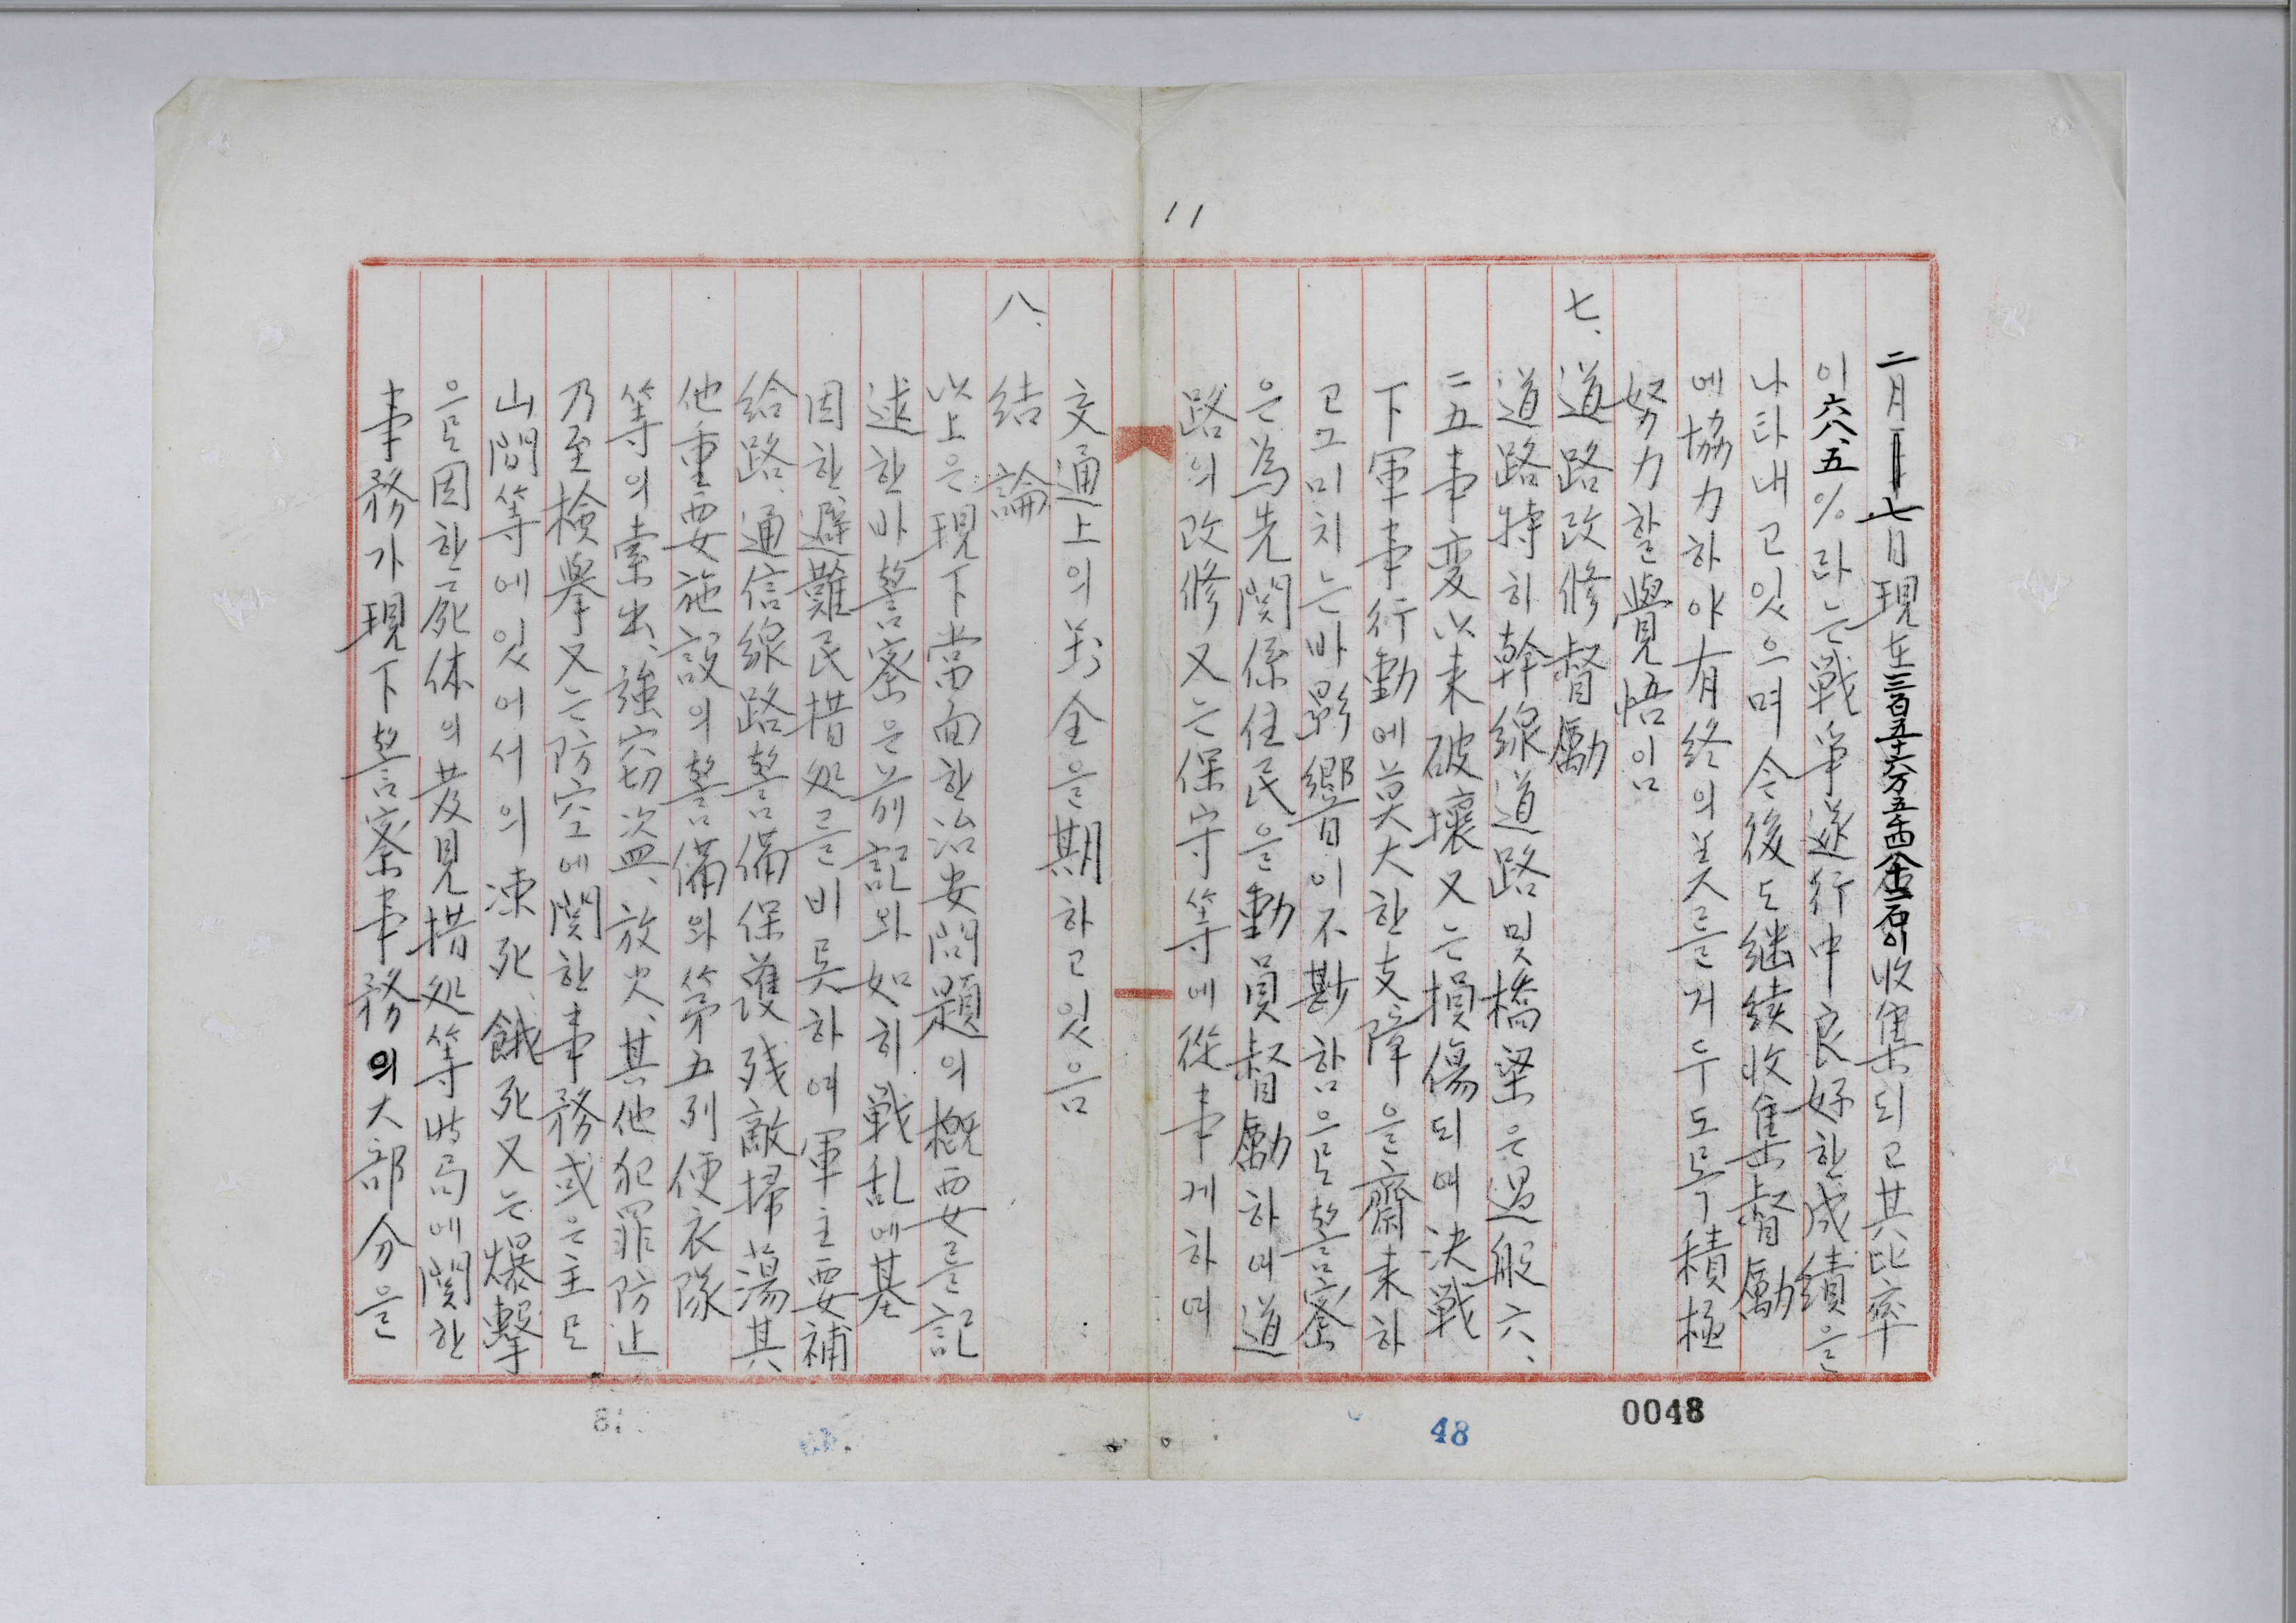 11
二月七日現在三百五十六万五千四百十二石이收集되고其比率
이六八、五%라는戰爭遂行中良好한成績을
나타내고있으며今後도継続收集督勵
에協力하야有終의美를거두도록積極
努力할覺悟임
七、道路改修督勵
道路特히幹線道路및橋梁은過般六、
二五事変以来破壞又는損傷되여決戰
下軍事行動에莫大한支障을齋来하
고그미치는바影響이不尠함으로警察
은為先関係住民을動員督勵하여道
路의改修又는保守等에從事케하며
交通上의万全을期하고있음
八、結論
以上은現下當面한治安問題의概要를記
述한바警察은前記와如히戰乱에基
因한避難民措処를비롯하여軍主要補
給路、通信線路警備保護残敵掃蕩其
他重要施設의警備와第五列便衣隊
等의索出、強窃盗、放火、其他犯罪防止
乃至検擧又는防空에関한事務或은主로
山間等에있어서의凍死、餓死又는爆擊
으로因한死体의発見措処等時局에関한
事務가現下警察事務의大部分을
0048
48